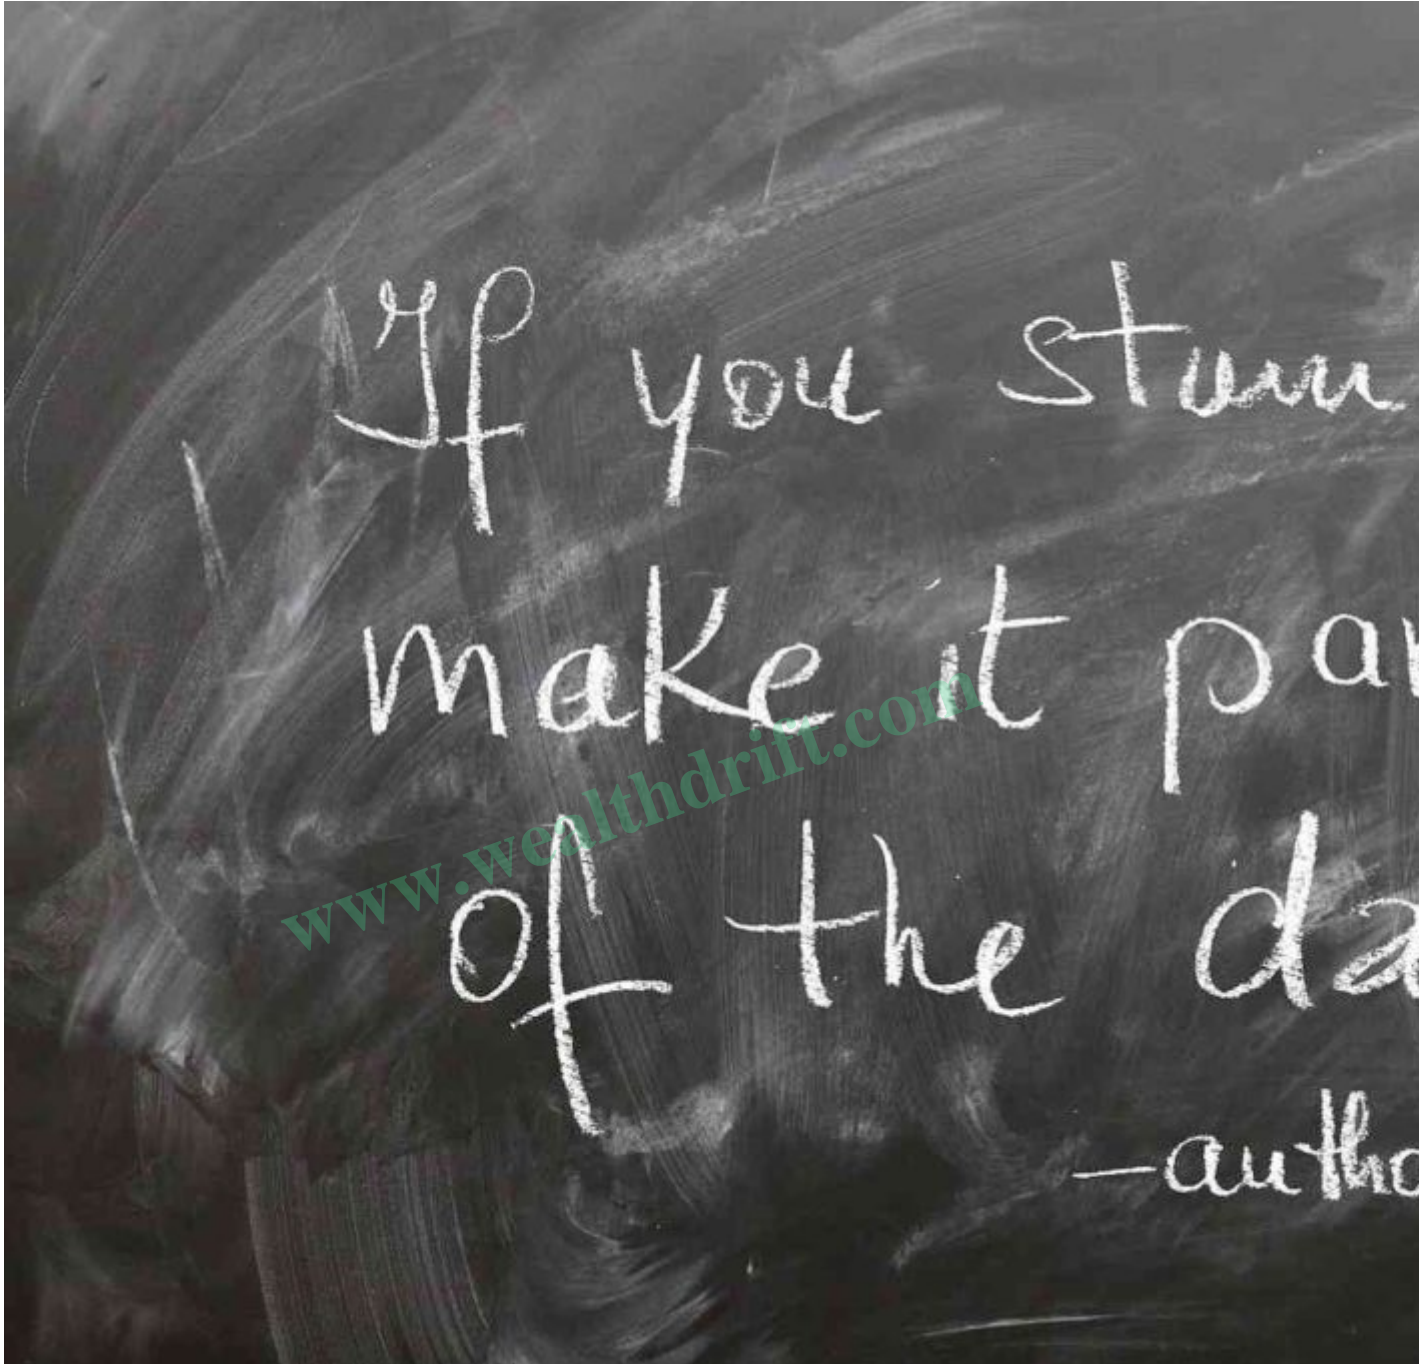 If you stum
make it par
of the da
—autho
www.wealthdrift.com